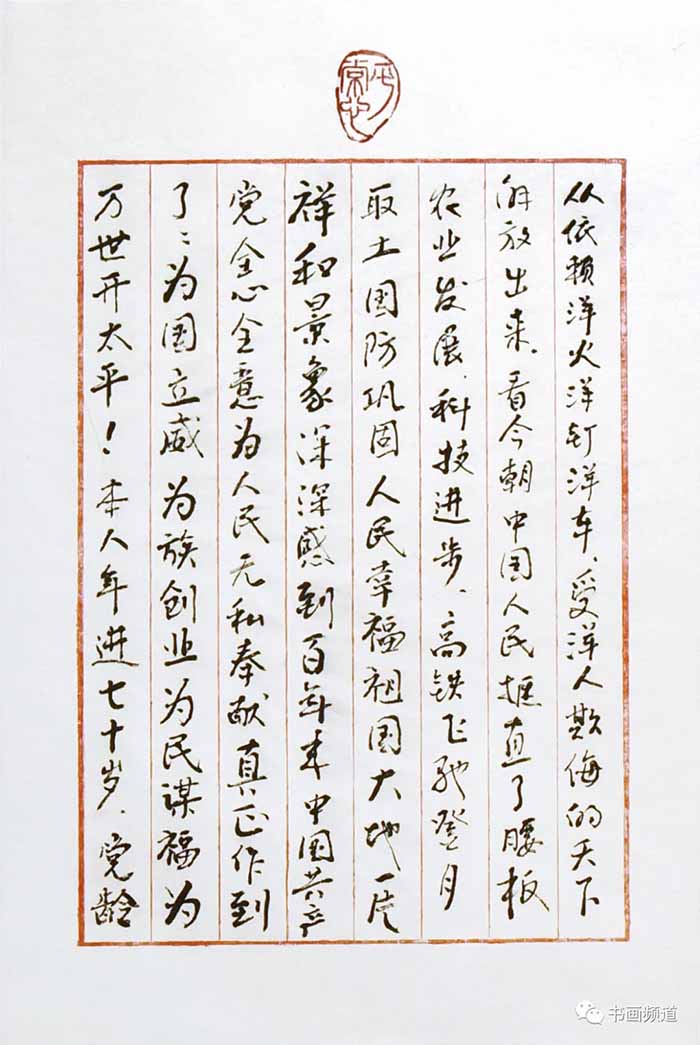 从依赖洋火洋钉洋车、受洋人欺侮的天下
解放出来、看今朝中国人民挺直了腰板
农业发展、科技进步、高铁飞驰登月
取土国防巩固人民幸福祖国大地一片
祥和景象深深感到百年来中国共产
党全心全意为人民无私奉献真正作到
了:为国立威为族创业为民谋福为
万世开太平！本人年进七十岁、党龄
书画频道